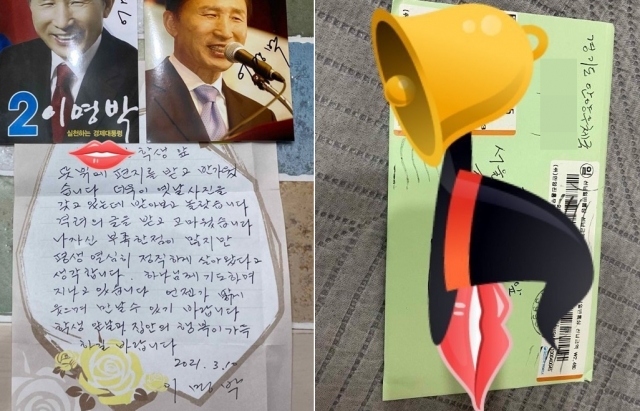 2이명박
실천하는 경제대통령
학생 앞
뜻밖에 편지를 받고 반가웠
습니다 더욱이 옛날 사진을
갖고 있는데 받아보고 놀랐습니다
격려의 글을 받고 고마웠습니다
나 자신 부족한 점이 많지만
평생 열심히 정직하게 살아왔다고
생각합니다. 하나님께 기도하며
지나고 있습니다 언젠가
웃으며 만날 수 있기 바랍니다
학생 앞날과 집안의 행복이 가득
하길 바랍니다
2021. 3. 10
이 명 박
경기도 안양
서울